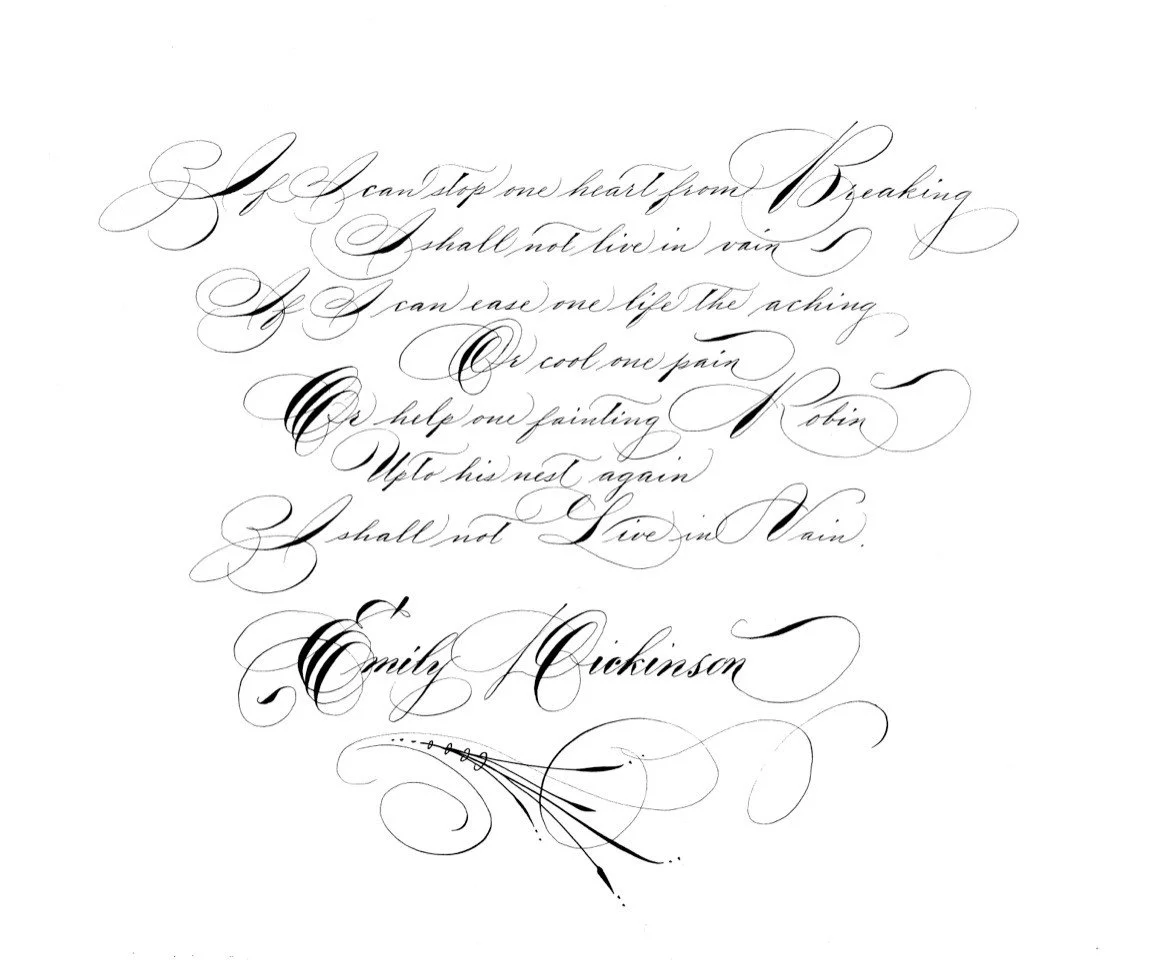 If I can stop one heart from Breaking
I shall not live in vain
If I can ease one life the aching
Or cool one pain
Or help one fainting Robin
Upto his nest again
I shall not Live in Vain.
Emily Dickinson